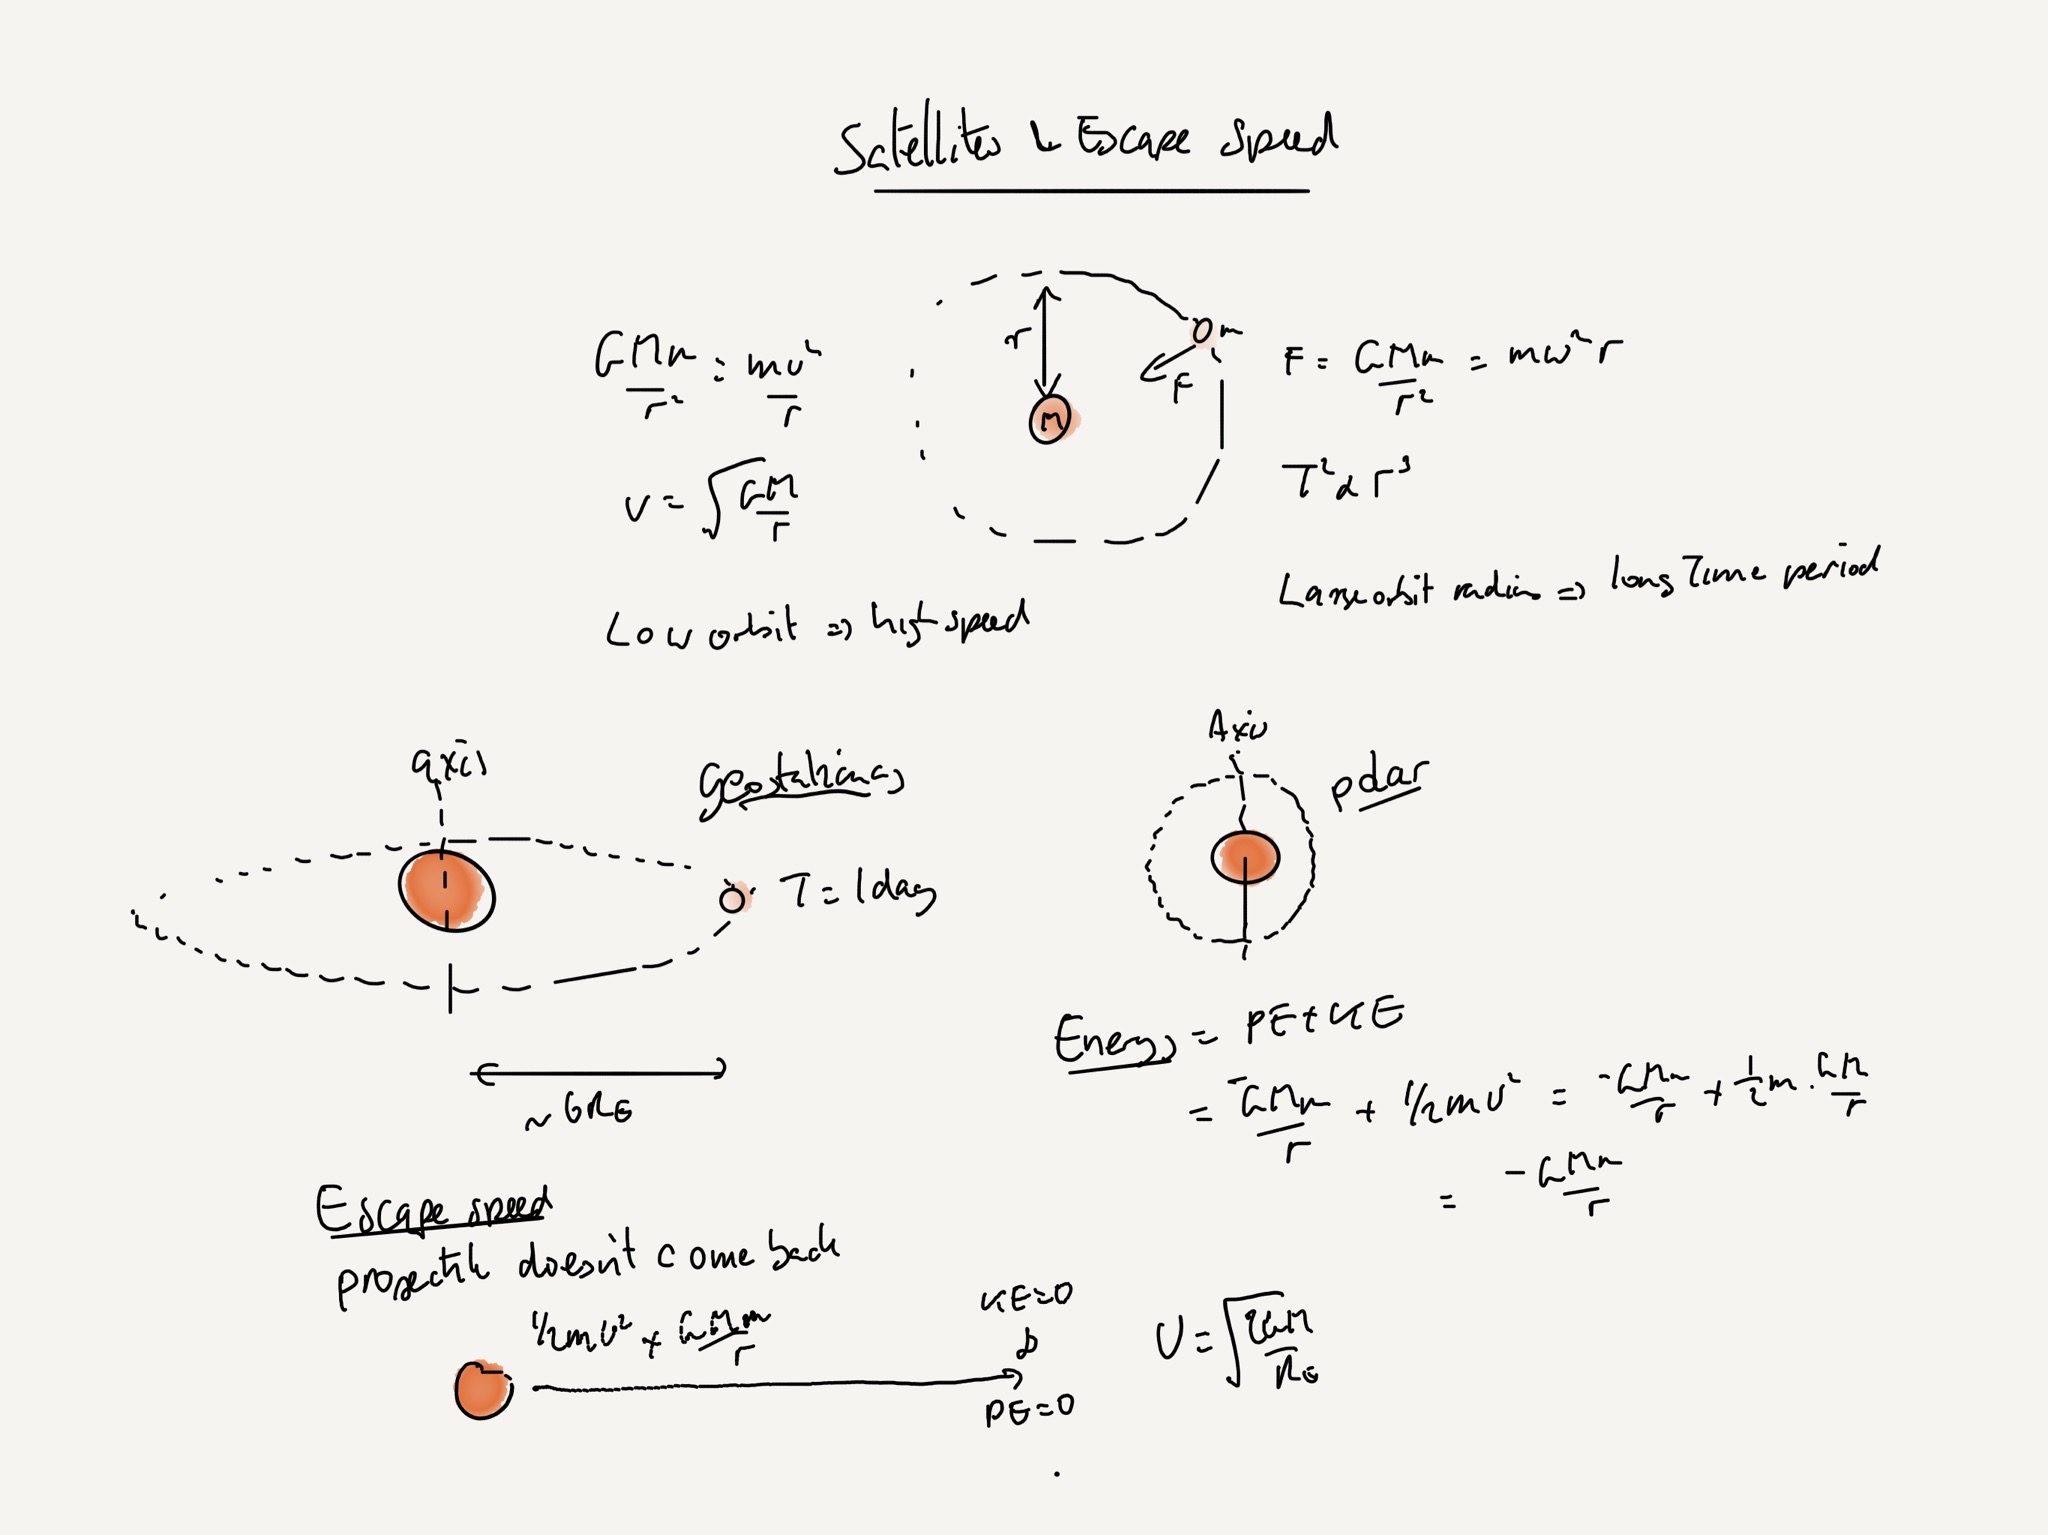 Satellites & Escape speed
GMm/r² = mv²/r
r
m
F
M
F = GMm/r² = mω²r
v = √(GM/r)
T² α r³
Low orbit => high speed
Large orbit radius => long Time period
axis
geostationary
T = 1 day
~ 6RE
Axis
polar
Energy = PE + KE
= -GMm/r + 1/2mv² = -GMm/r + 1/2 m . GM/r
= -GMm/r
Escape speed
projectile doesn't come back
1/2mv² + GMm/r
KE=0
&
PE=0
v = √(2GM/RE)